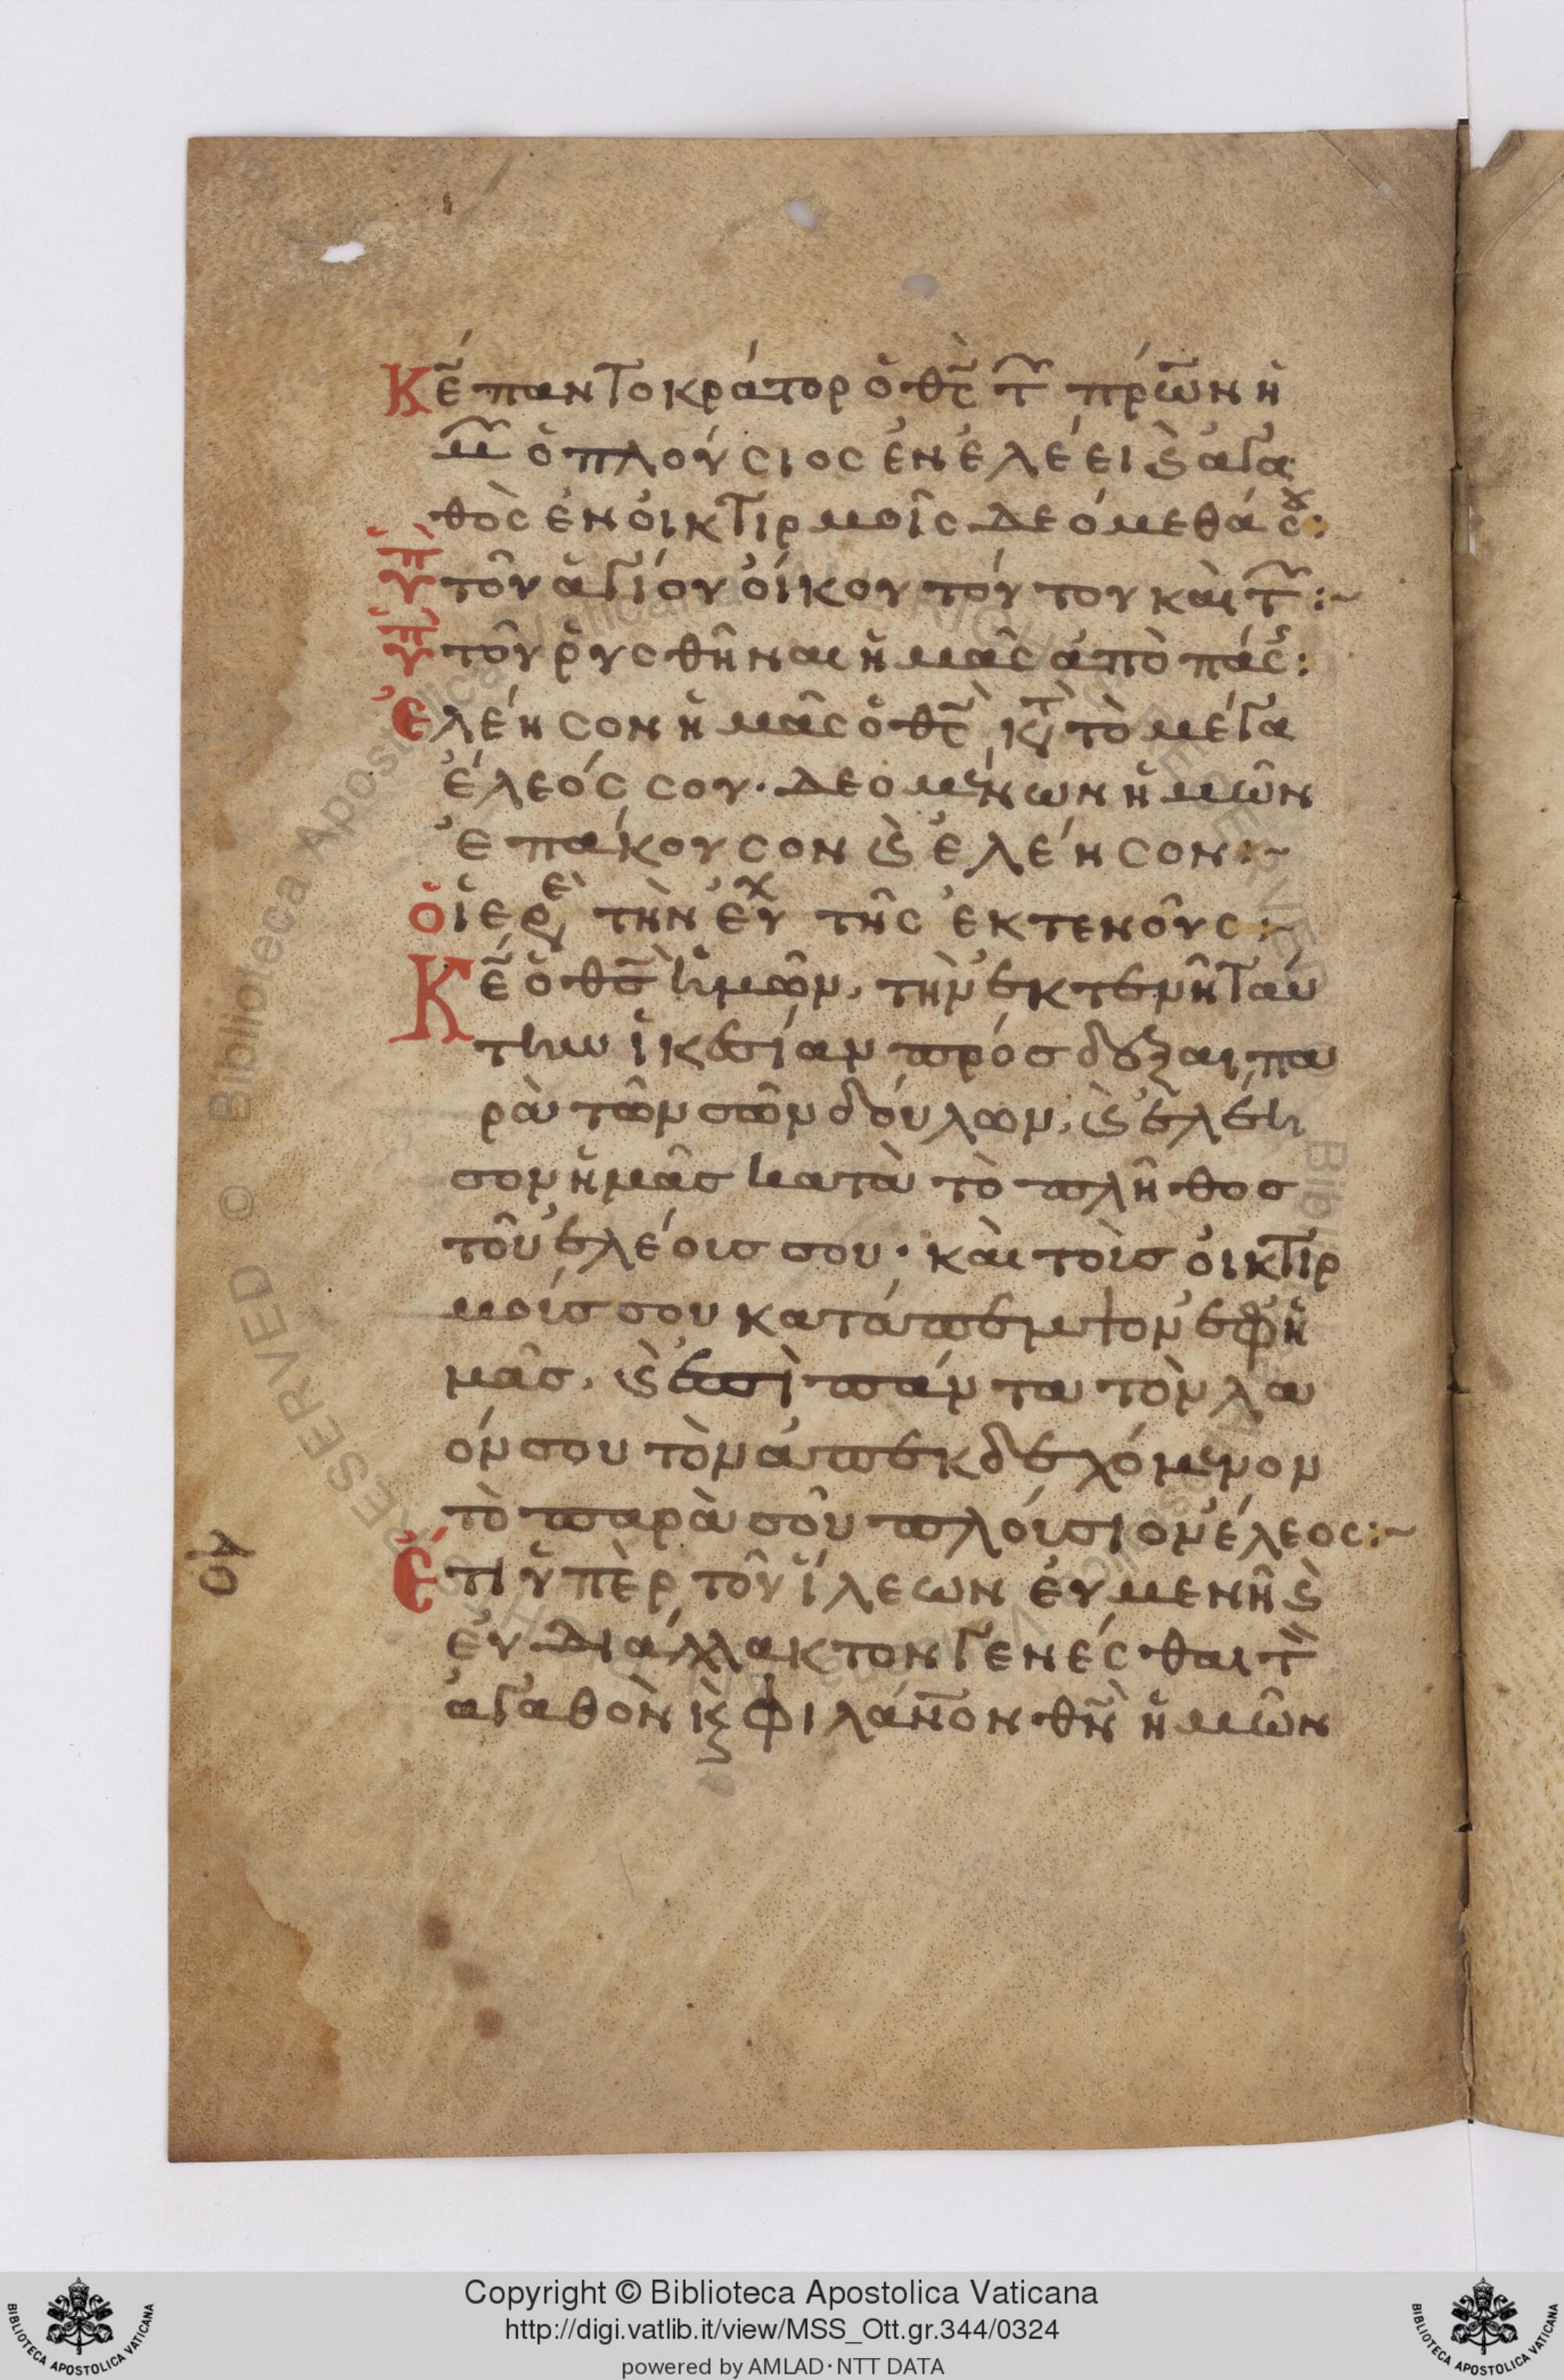 Κε̃ παντοκράτορ ὁ θς̃ τ͂ πρ̅ω̅ν ἡ
μ͂ ὁ πλούσιος ἐν ἐλέει ϗ̀ ἀγα
θὸς ἐν οἰκτιρμοῖς δεόμεθά σου:
Ὑπ τοῦ ἁγίου οἴκου τούτου καὶ τ͂ :~
Ὑπ τοῦ ῥυσθῆναι ἡμᾶς ἀπὸ πάσ:
Ἐλέησον ἡμᾶς ὁ θς̃ κτ̀ τὸ μέγα
ἔλεός σου· δεομένων ἡμῶν
ἐπάκουσον ϗ̀ ἐλέησον:~
ὁ ἱερὲ τὴν εὐχ τῆς ἐκτενοῦς:~
Κε̃ ὁ θσ̃ ἡμῶν, τὴν ἐκτενῆ ταύ
την ἱκεσίαν πρόσδεξαι πα
ρὰ τῶν σῶν δούλων, ϗ̀ ἐλέη
σον ἡμᾶσ κατὰ τὸ πλῆθοσ
τοῦ ἐλέοισ σου· καὶ τοὶσ οἰκτιρ
μοίσ σου κατάπεμψον ἐφ ἡ
μᾶσ, ϗ̀ ἐπὶ πάντα τὸν λα
όν σου τὸν ἀπεκδεχόμενον
τὸ παρὰ σοῦ πλόισιον ἔλεος:~
Ἔτι ὑπὲρ τοῦ ἵλεων εὐμενῆ ϗ̀
εὐδιάλλακτον γενέσθαι τ̀
ἀγαθὸν κ̀ φιλάν̅ον θν̃ ἡμῶν
Copyright © Biblioteca Apostolica Vaticana
http://digi.vatlib.it/view/MSS_Ott.gr.344/0324
powered by AMLAD·NTT DATA
BIBLIOTECA APOSTOLICA VATICANA
BIBLIOTECA APOSTOLICA VATICANA